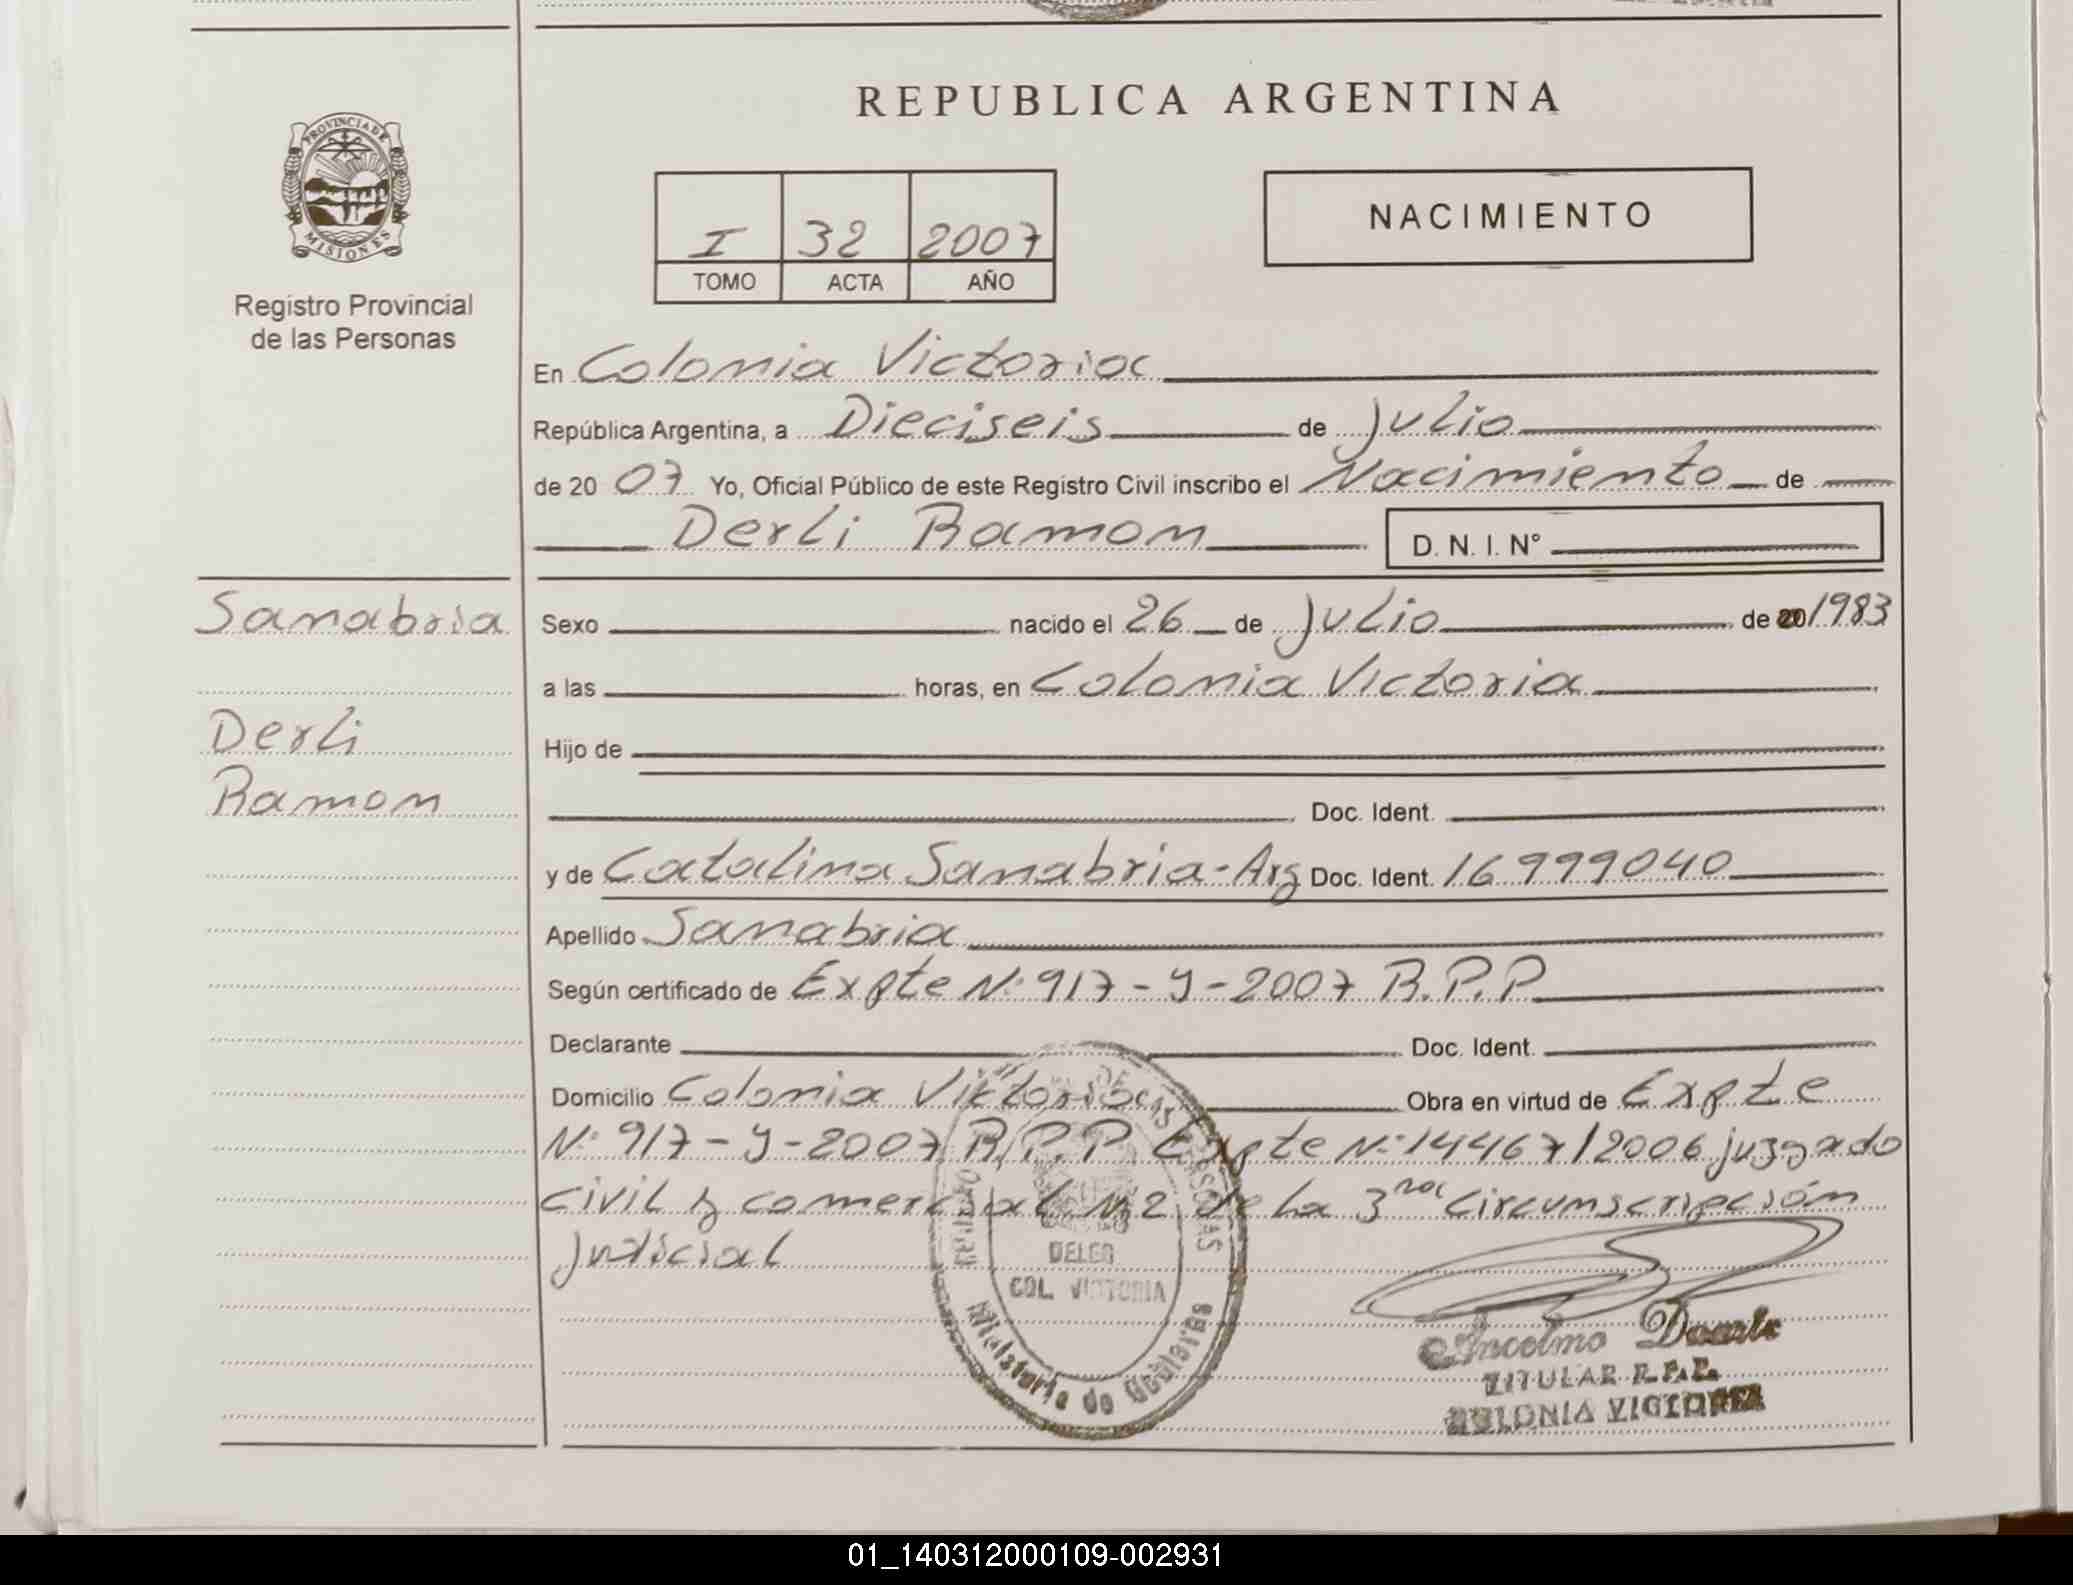 REPUBLICA ARGENTINA
PROVINCIA DE
MISIONES
Registro Provincial
de las Personas
I 32 2007
TOMO ACTA AÑO
NACIMIENTO
En Colonia Victoria
República Argentina, a Dieciseis de Julio
de 20 07 Yo, Oficial Público de este Registro Civil inscribo el Nacimiento de
Derli Ramon D. N. I. N°
Sanabria
Derli
Ramon
Sexo nacido el 26 de Julio de 20 1983
a las horas, en Colonia Victoria
Hijo de
Doc. Ident.
y de Catalina Sanabria-Arg Doc. Ident. 16999040
Apellido Sanabria
Según certificado de Expte N: 917-Y-2007 R.P.P
Declarante Doc. Ident.
Domicilio Colonia Victoria Obra en virtud de Expte
N: 917-Y-2007 R.P.P Expte N: 14467/2006 juzgado
civil y comercial N: 2 de La 3ra Circunscripción
Judicial
DELEG
COL. VICTORIA
Ministerio de Gobierno
Ancelmo Duarte
TITULAR R.P.P.
COLONIA VICTORIA
01_140312000109-002931